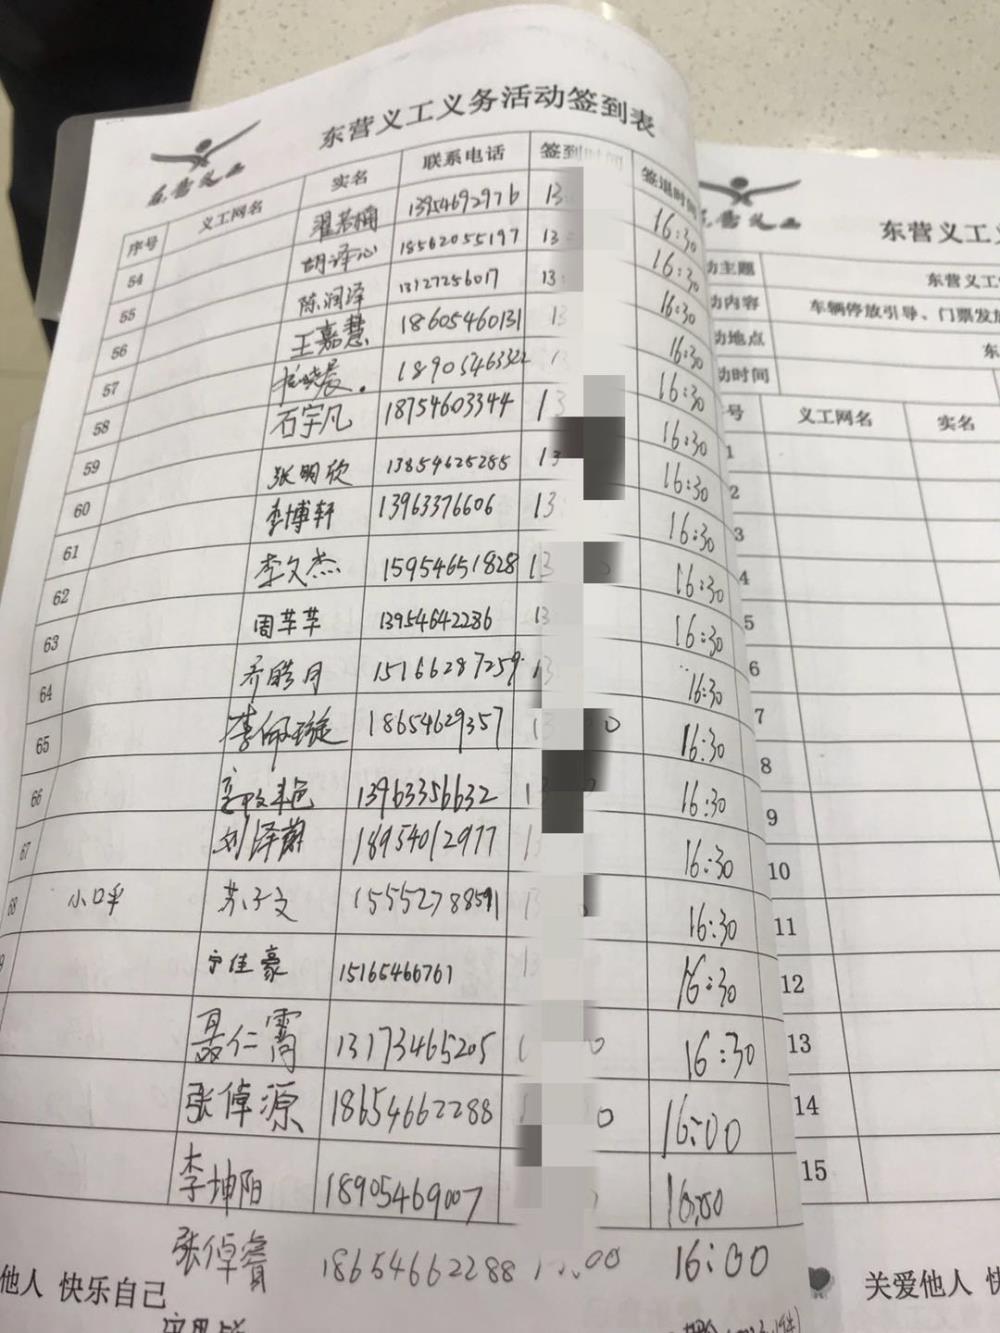 东营义工义务活动签到表
东营义工
序号 义工网名 实名 联系电话 签到时间 签退时间
54 翟若楠 13954692976 13 16:30
55 胡译心 18562055197 13 16:30
56 陈润泽 13127256017 13: 16:30
57 王嘉慧 18605460131 13 16:30
58 晓晨. 18905463322 13 16:30
59 石宇凡 18754603344 13 16:30
60 张明欣 13854625255 13 16:30
61 李博轩 13963376606 13 16:30
62 李文杰 15954651828 13 16:30
63 周芊芊 13954642286 13 16:30
64 乔皓月 15166287259 13 16:30
65 李佩璇 18654629357 13 0 16:30
66 13963356632 1 16:30
67 刘泽蔚 18954012977 1 16:30
68 小口平 苏子文 15555278891 13 16:30
9 宁佳豪 15165466761 13 16:30
聂仁霄 13173465205 1 0 16:30
张倬源 18654662288 1 0 16:00
李坤阳 18905469007 16:00
张倬睿 18654662288 1 :00 16:00
他人 快乐自己
东营义工
东营义工
动主题 东营义工
动内容 车辆停放引导、门票发放
动地点 东
动时间
号 义工网名 实名
1
2
3
4
5
6
7
8
9
10
11
12
13
14
15
关爱他人 快